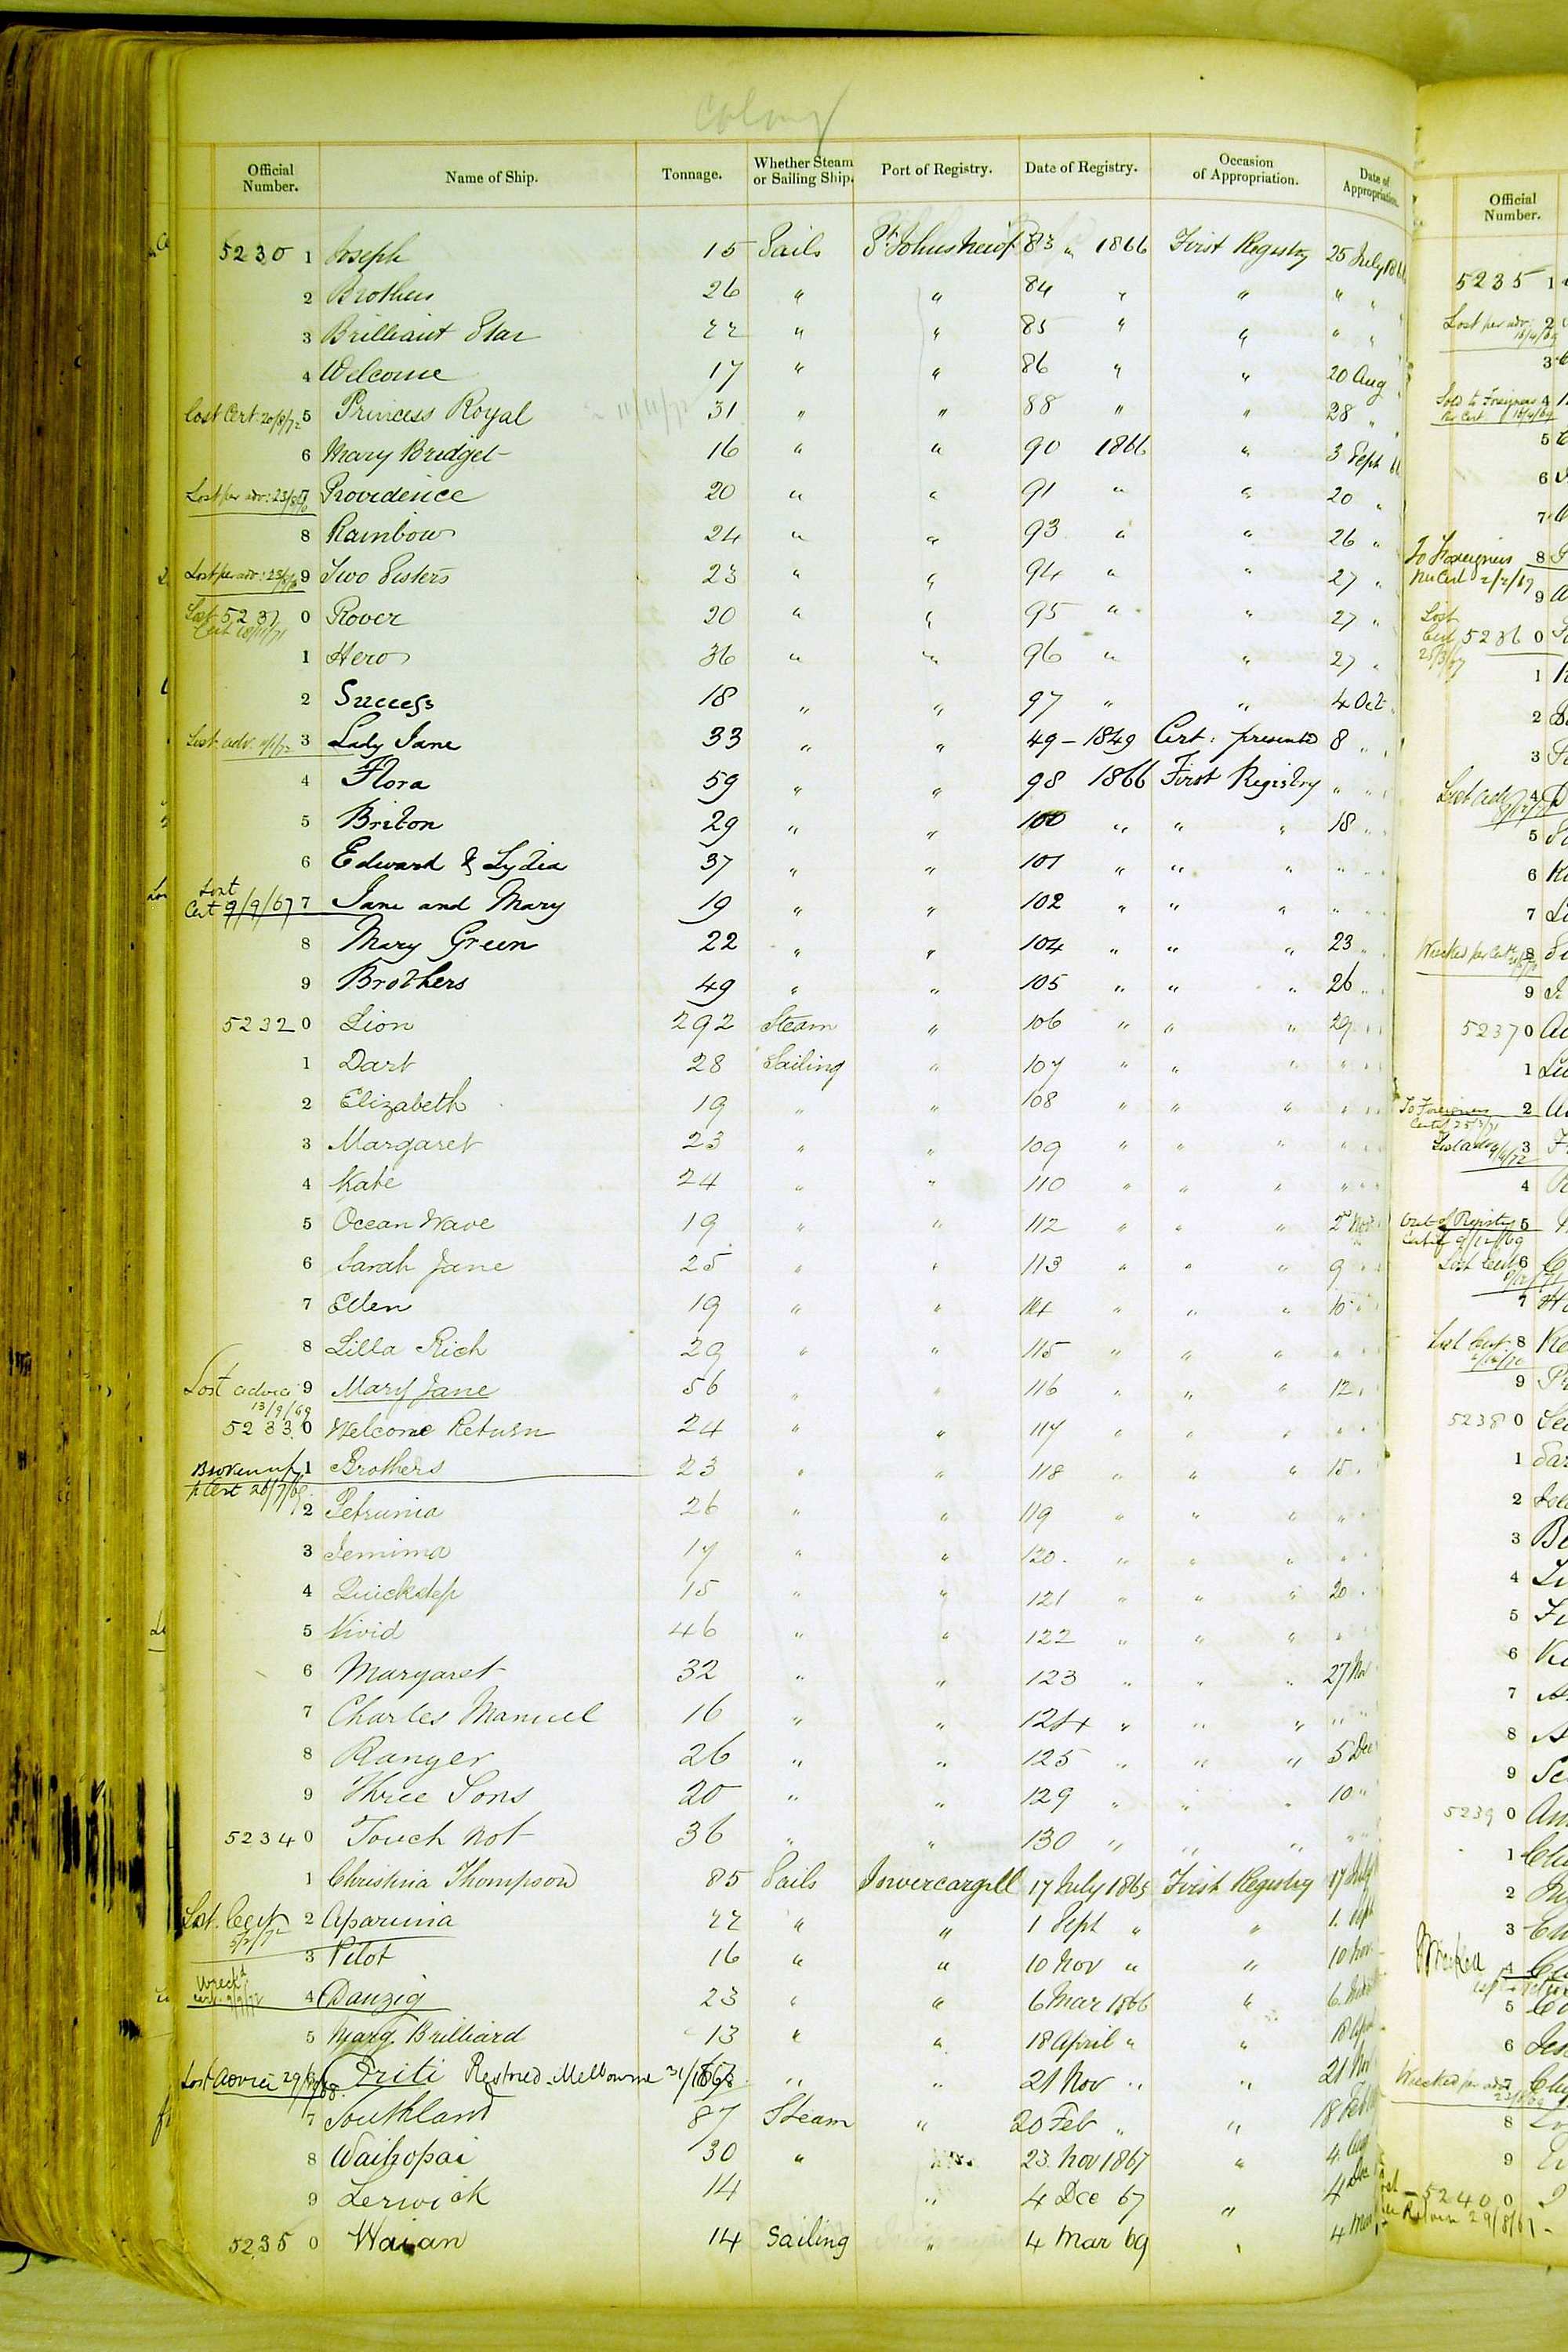 Colony
Official Number. Name of Ship. Tonnage. Whether Steam or Sailing Ship. Port of Registry. Date of Registry. Occasion of Appropriation. Date of Appropriation.
5230 1 Joseph 15 Sails St Johns Newf 83 " 1866 First Registry 25 July
2 Brothers 26 " " 84 " " " "
3 Brilliant Star 22 " " 85 " " " "
4 Welcome 17 " " 86 " " 20 Aug
Lost Cert. 20/8/72 5 Princess Royal 11/11/72 31 " " 88 " " 28 "
6 Mary Bridget 16 " " 90 1866 " 3 Sept
Lost per adv: 7 Providence 20 " " 91 " " 20 "
8 Rainbow 24 " " 93 " " 26 "
Lost per adv: 9 Two Sisters 23 " " 94 " " 27 "
Lost 5231 0 Rover 20 " " 95 " " 27 "
Cert
1 Hero 36 " " 96 " " 27 "
2 Success 18 " " 97 " " 4 Oct
Lost adv. 3 Lady Jane 33 " " 49 - 1849 Cert: presented 8 "
4 Flora 59 " " 98 1866 First Registry " "
5 Briton 29 " " 100 " " " 18 "
6 Edward & Lydia 37 " " 101 " " " " "
Lost Cert 9/9/67 7 Jane and Mary 19 " " 102 " " " " "
8 Mary Green 22 " " 104 " " " 23 "
9 Brothers 49 " " 105 " " " 26 "
5232 0 Lion 292 Steam " 106 " " " 29 "
1 Dart 28 Sailing " 107 " " " " "
2 Elizabeth 19 " " 108 " " " " "
3 Margaret 23 " " 109 " " " " "
4 Kate 24 " " 110 " " " " "
5 Ocean Wave 19 " " 112 " " " 2 Nov
6 Sarah Jane 25 " " 113 " " " 9 "
7 Ellen 19 " " 114 " " " 10 "
8 Lilla Rich 29 " " 115 " " " "
Lost advice 13/9/69 9 Mary Jane 56 " " 116 " " " 12 "
5233 0 Welcome Return 24 " " 117 " " " "
Broken up p Cert 26/7/69 1 Brothers 23 " " 118 " " " 15 "
2 Petrunia 26 " " 119 " " " "
3 Jemima 17 " " 120 " " " "
4 Quickstep 15 " " 121 " " " 20 "
5 Vivid 46 " " 122 " " " "
6 Margaret 32 " " 123 " " " 27 Nov
7 Charles Manuel 16 " " 124 " " " "
8 Ranger 26 " " 125 " " " 5 Dec
9 Three Sons 20 " " 129 " " " 10 "
5234 0 Touch Not 36 " " 130 " " " "
1 Christina Thompson 85 Sails Invercargill 17 July 1865 First Registry 17 July
Lost. Cert 2 Aparima 22 " " 1 Sept " " 1. Sept
3 Pilot 16 " " 10 Nov " " 10 Nov
Wreckd 4 Danzig 23 " " 6 Mar 1866 "
5 Marg. Brilliard 13 " " 18 April " " 18 Apl
Lost Advice Friti Restored Melbourne " " 21 Nov " " 21 Nov
7 Southland 87 Steam " 20 Feb " " 18 Feb
8 Waihopai 30 " " 23. Nov 1867 " 4. Aug
9 Lerwick 14 " 4 Dec 67 " 4 Dec
5235 0 Waian 14 Sailing " 4 Mar 69 " 4 Mar
Official Number.
5235 1
Lost per adv: 2
16/4/69
3
Sold to Foreigners 4
Per Cert. 16/4/69
5
6
7
To Foreigners 8
Per Cert 2/2/67
9
Lost Cert 5236 0
25/3/67
1
2
3
Lost adv 4
5
6
7
Wrecked per Cert 8
9
5237 0
1
To Foreigners 2
Certif 25/3/71
Lost adv 3
4
Cert of Registry 5
Certif 9/12/69
Lost Cert 6
7
Lost Cert. 8
9
5238 0
1
2
3
4
5
6
7
8
9
5239 0
1
2
3
Wrecked 4
5
6
Wrecked per adv 7
8
9
5240 0
Return 29/8/67